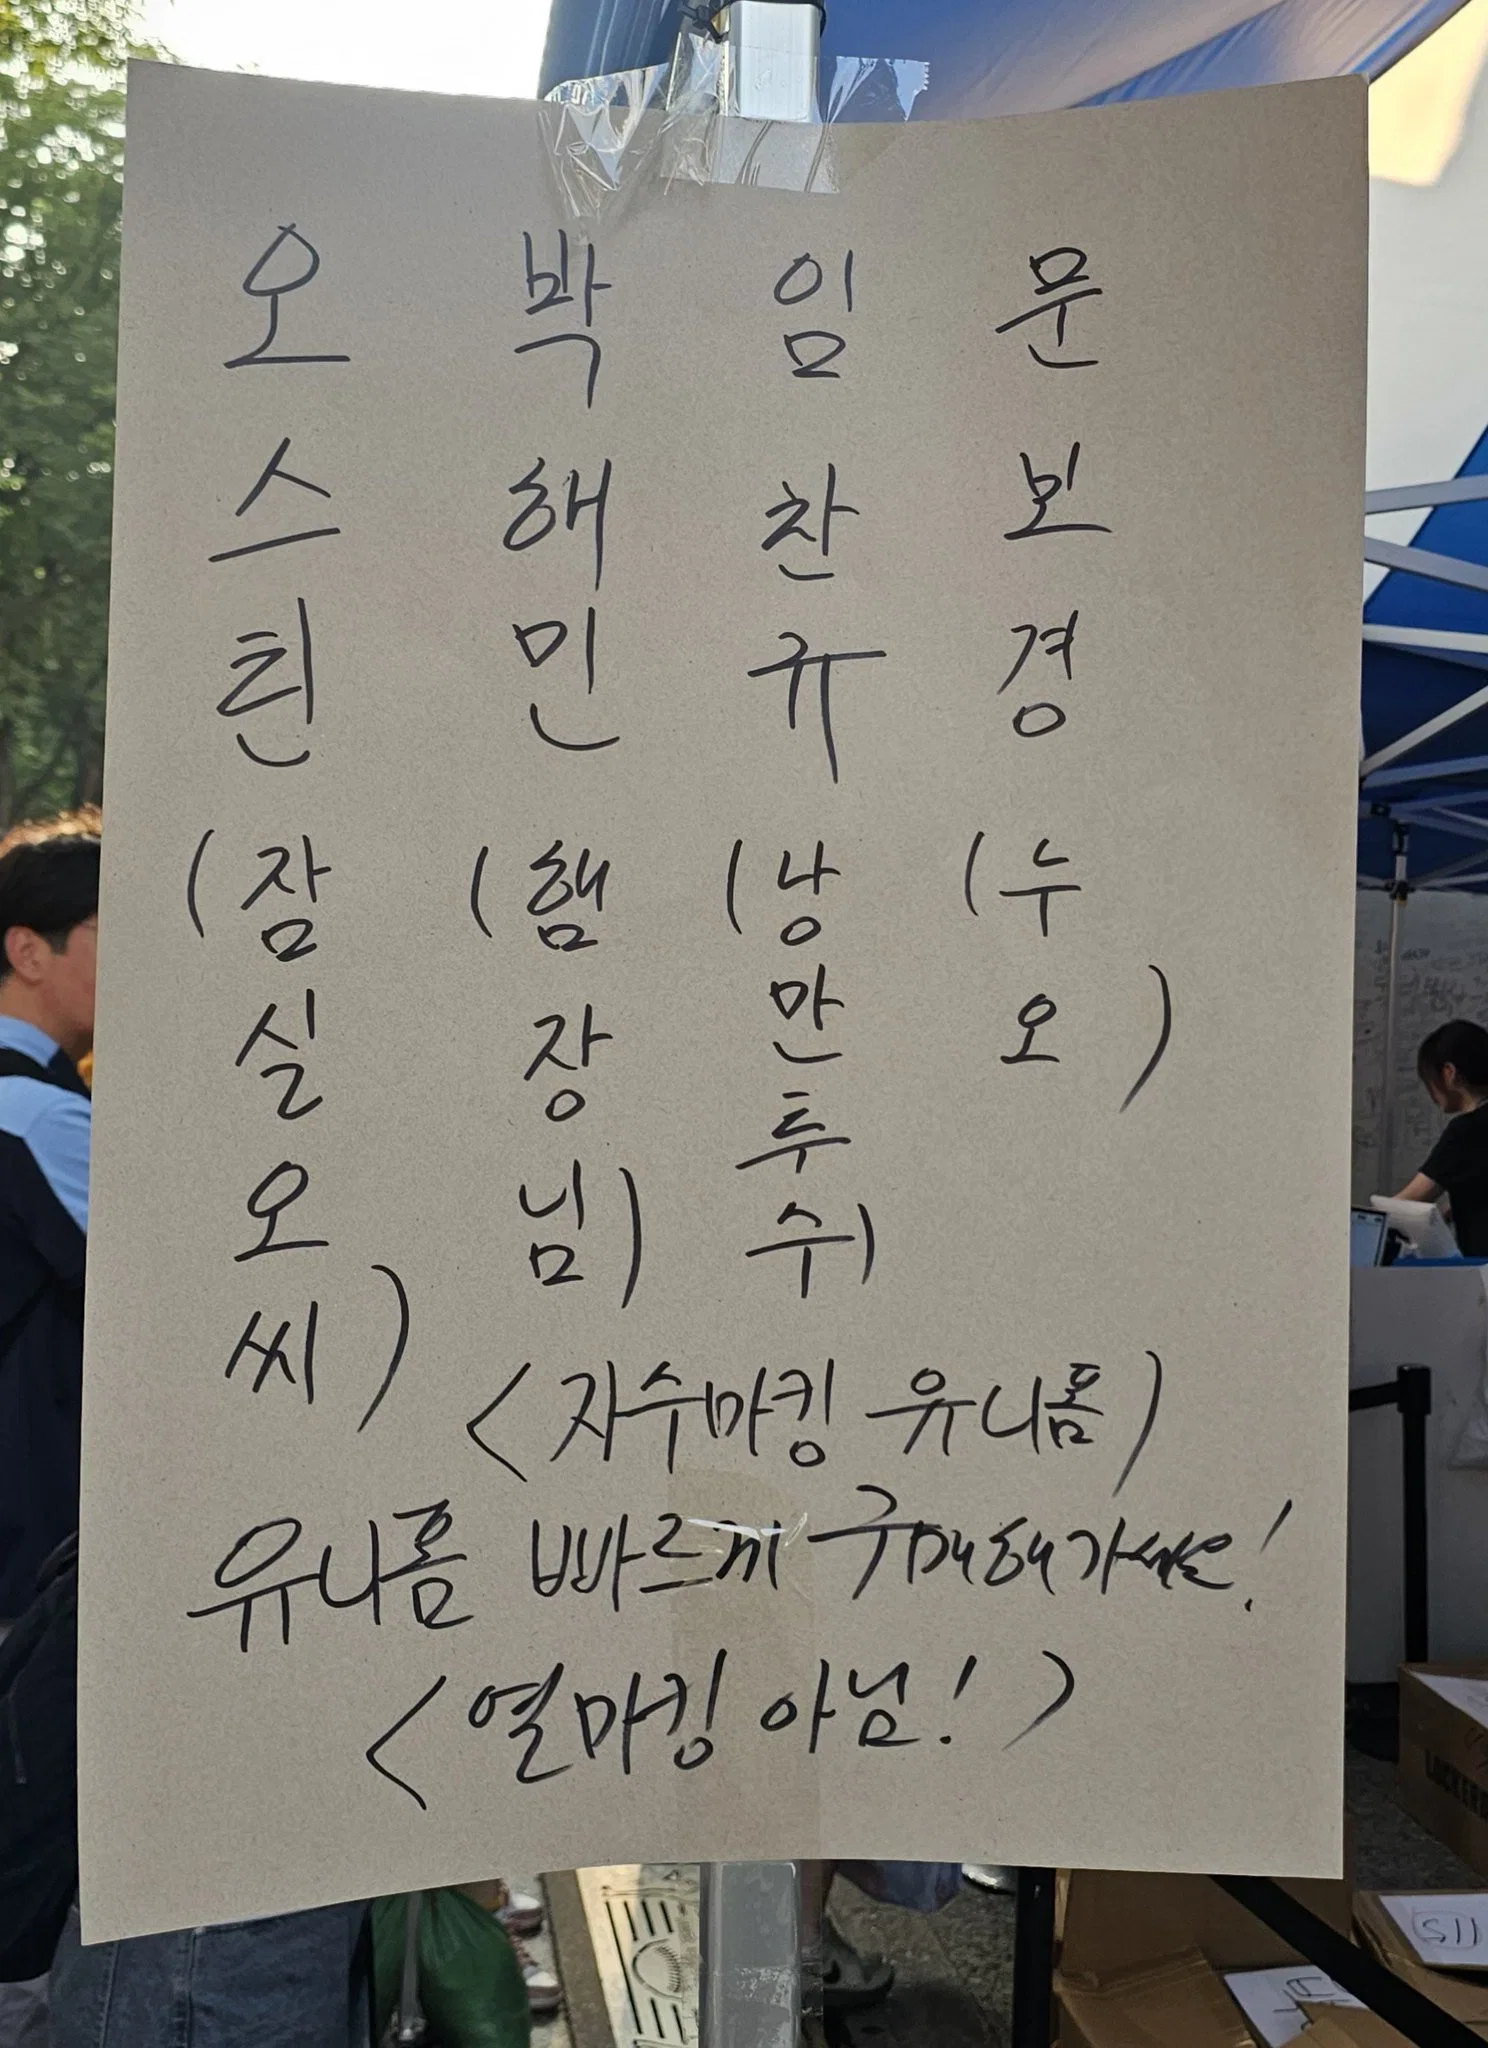 오스틴
(잠실오씨)
박해민
(햄장님)
임찬규
(낭만투수)
문보경
(누오)
<자수마킹 유니폼)
유니폼 빠르게 구매해가세요!
<열마킹 아님!)
LOCKER